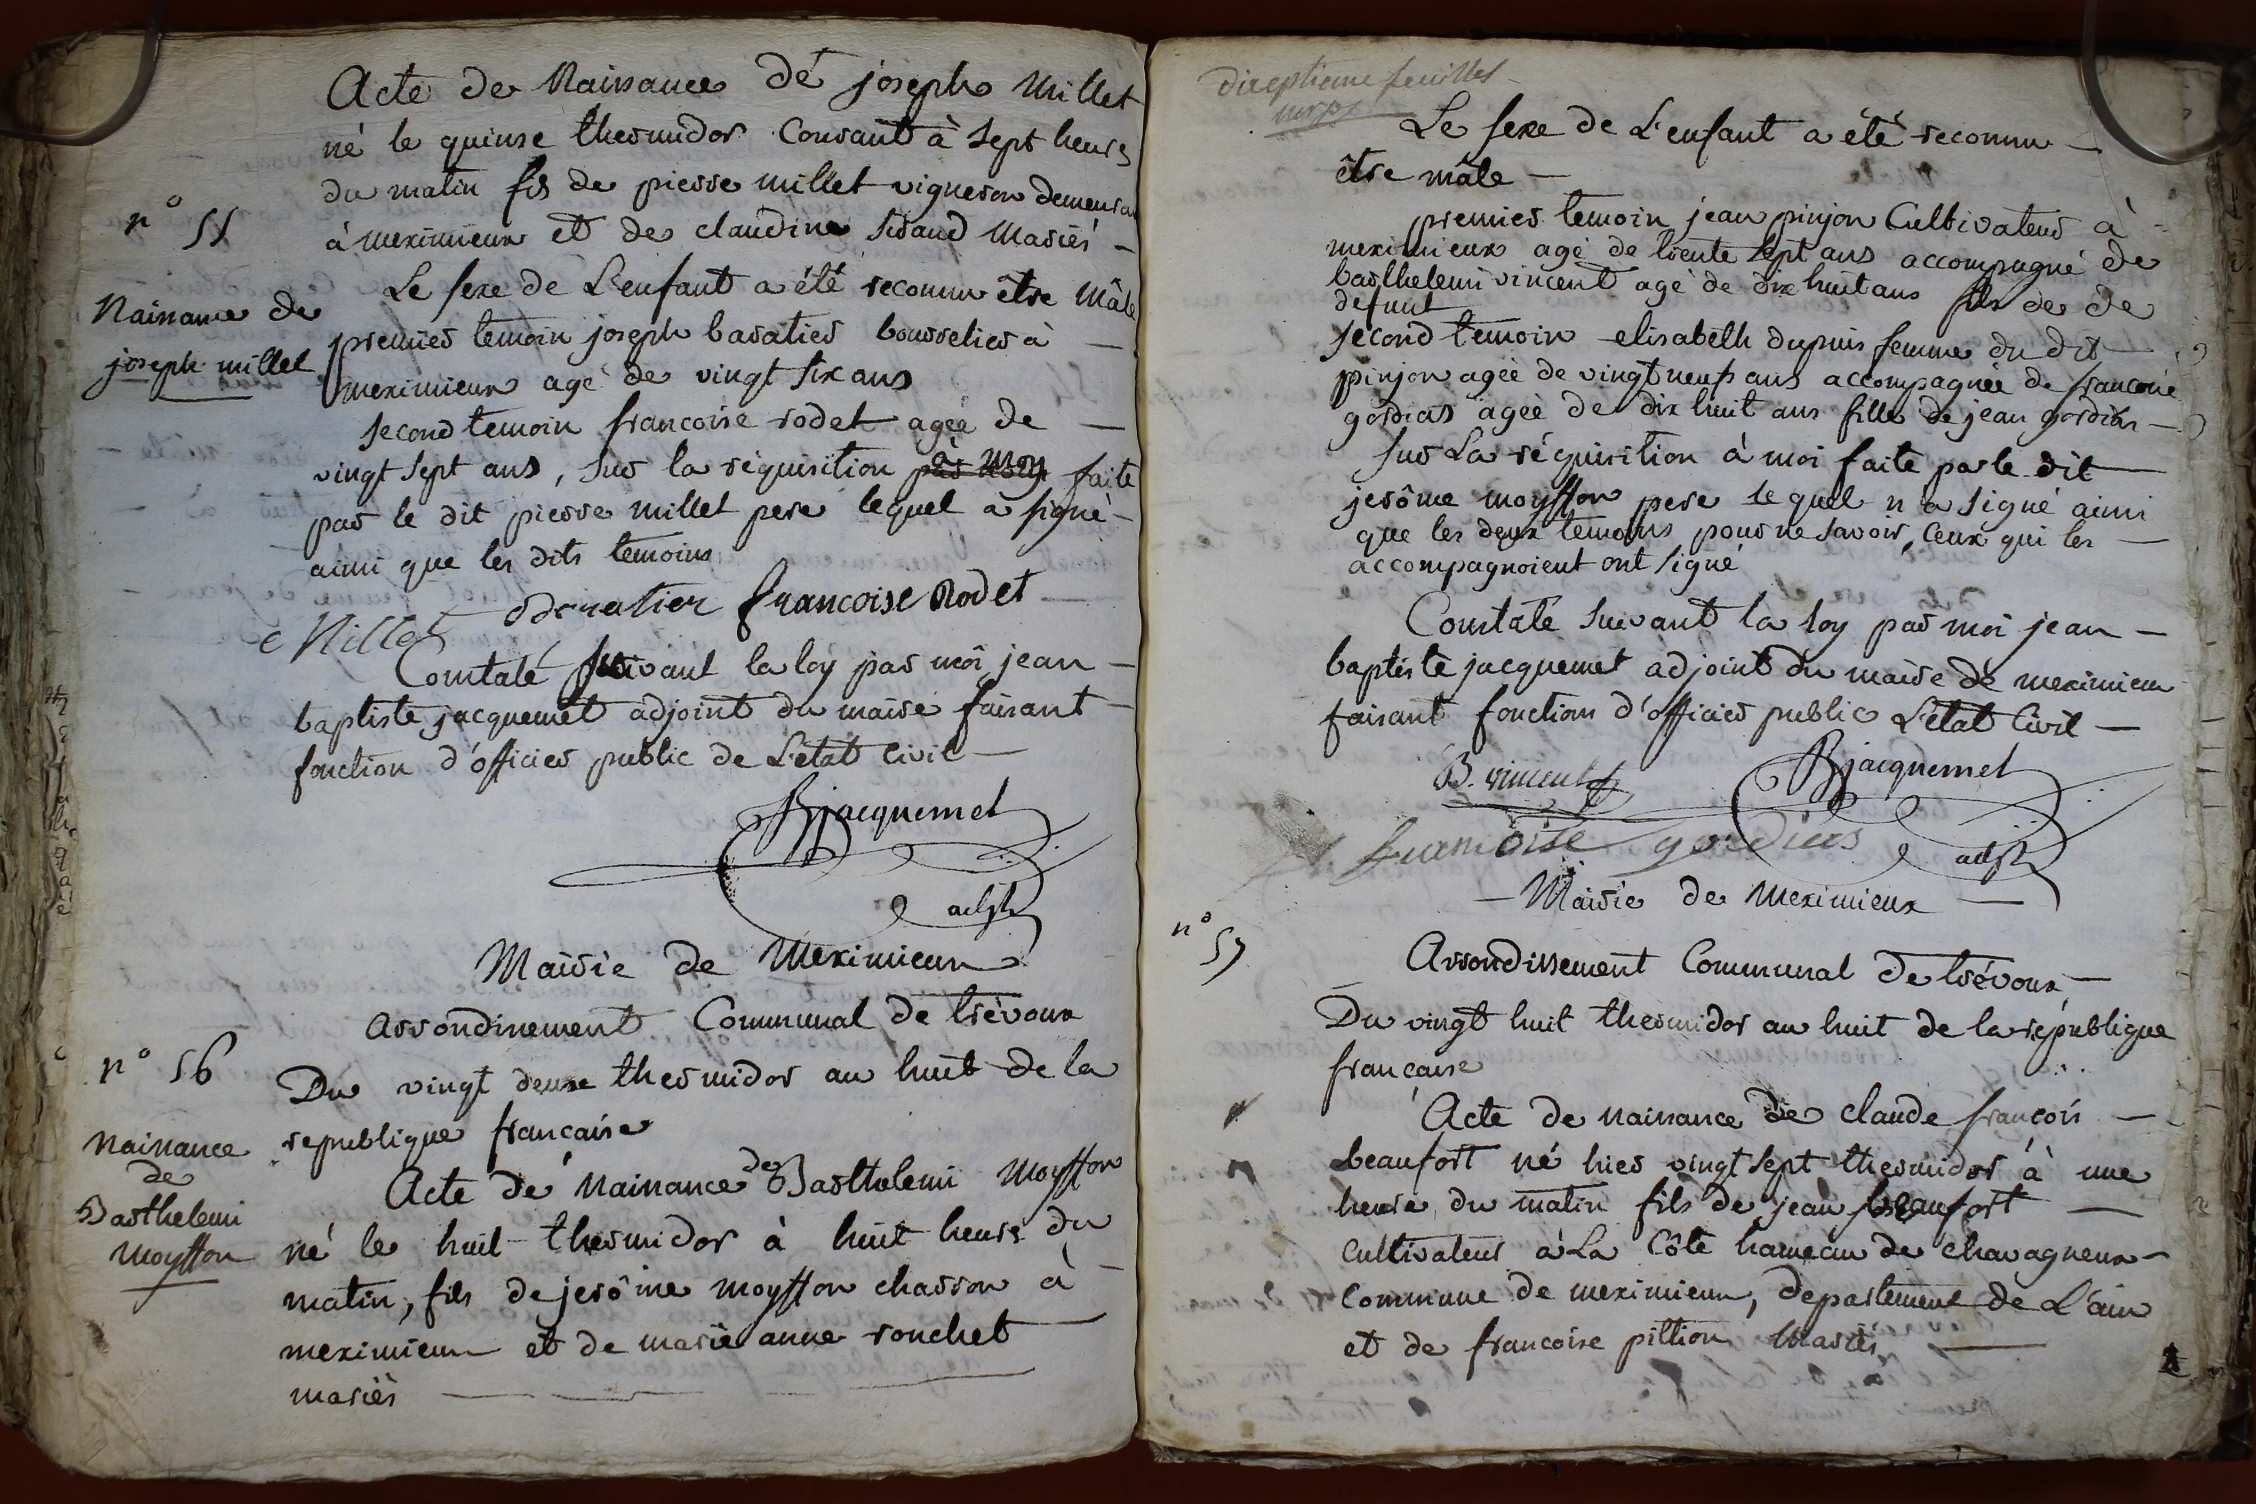 Acte de Naissance de joseph Millet
né le quinse thermidor Courant à sept heures
du matin fils de pierre millet vigneron demeurant
à meximieux et de claudine Siraud Mariés
n° 55
Naissance de
joseph millet
Le sexe de L'enfant a été reconnu être Mâle
premier temoin joseph baratier bourrelier à
meximieux agé de vingt six ans
second temoin francoise rodet agée de
vingt sept ans, sur la réquisition à moy faite
par le dit pierre millet pere lequel a signé
ainsi que les dits temoins
Millet Baratier francoise Rodet
Constaté suivant la loy par moi jean
baptiste jacquemet adjoint du maire faisant
fonction d'officier public de L'état Civil
Bjacquemet
adjt
Mairie de Meximieux
arrondissement Communal de trévoux
n° 56
Du vingt deuxe thermidor an huit de la
republique francaise
Naissance
de
Barthelemi
Moysson
Acte de Naissance de Barthelemi Moysson
né le huit thermidor à huit heures du
matin, fils de jerôme moysson charron à
meximieux et de marie anne ronchet
mariés
dixeptieme feuillet
Le sexe de L'enfant a été reconnu
être mâle
premier temoin jean pinjon Cultivateur à
meximieux agé de trente sept ans accompagné de
barthelemi vincent agé de dix huit ans fils de de
defunt
second temoin elisabeth dupuis femme du dit
pinjon agée de vingt neuf ans accompagnée de francoise
gordias agée de dix huit ans fille de jean gordias
sur La réquisition à moi faite par le dit
jerôme moysson pere lequel n'a signé ainsi
que les deux temoins pour ne savoir, Ceux qui les
accompagnoient ont signé
Constaté suivant la loy par moi jean
baptiste jacquemet adjoint du maire de meximieux
faisant fonctions d'officier public L'état Civil
B. vincent Bjacquemet
francoise gordias adjt
Mairie de Meximieux
n° 57
Arrondissement Communal de trévoux
Du vingt huit thermidor an huit de la république
francaise
Acte de naissance de claude francois
beaufort né hier vingt sept thermidor à une
heure du matin fils de jean beaufort
Cultivateur à La Côte hameau de chavagneux
Commune de meximieux, departement de L'ain
et de francoise pittion Mariés